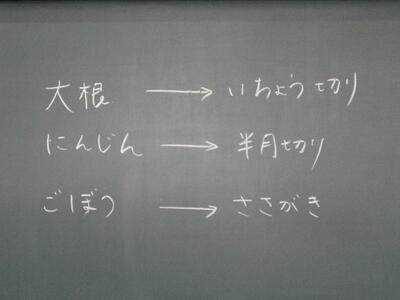 大根 → いちょう切り
にんじん → 半月切り
ごぼう → ささがき